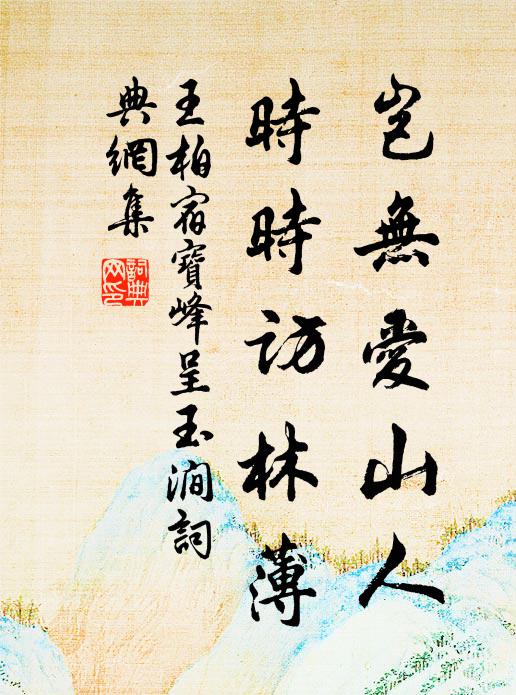 豈無愛山人
時時訪林薄
王柏宿寶峰呈玉澗詞
典網集
詞典
網印